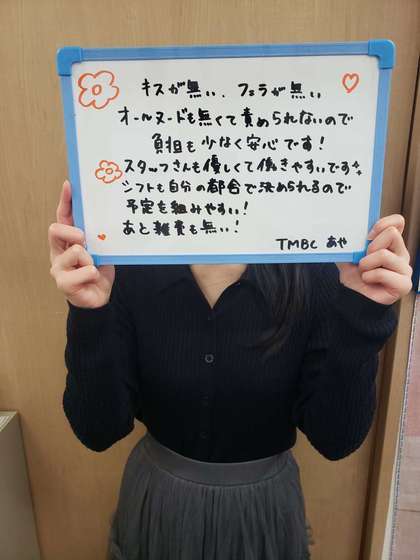 キスが無い、フェラが無い
オールヌードも無くて責められないので
負担も少なく安心です！
スタッフさんも優しくて働きやすいです
シフトも自分の都合で決められるので
予定も組みやすい！
あと雑費も無い！
TMBC あや